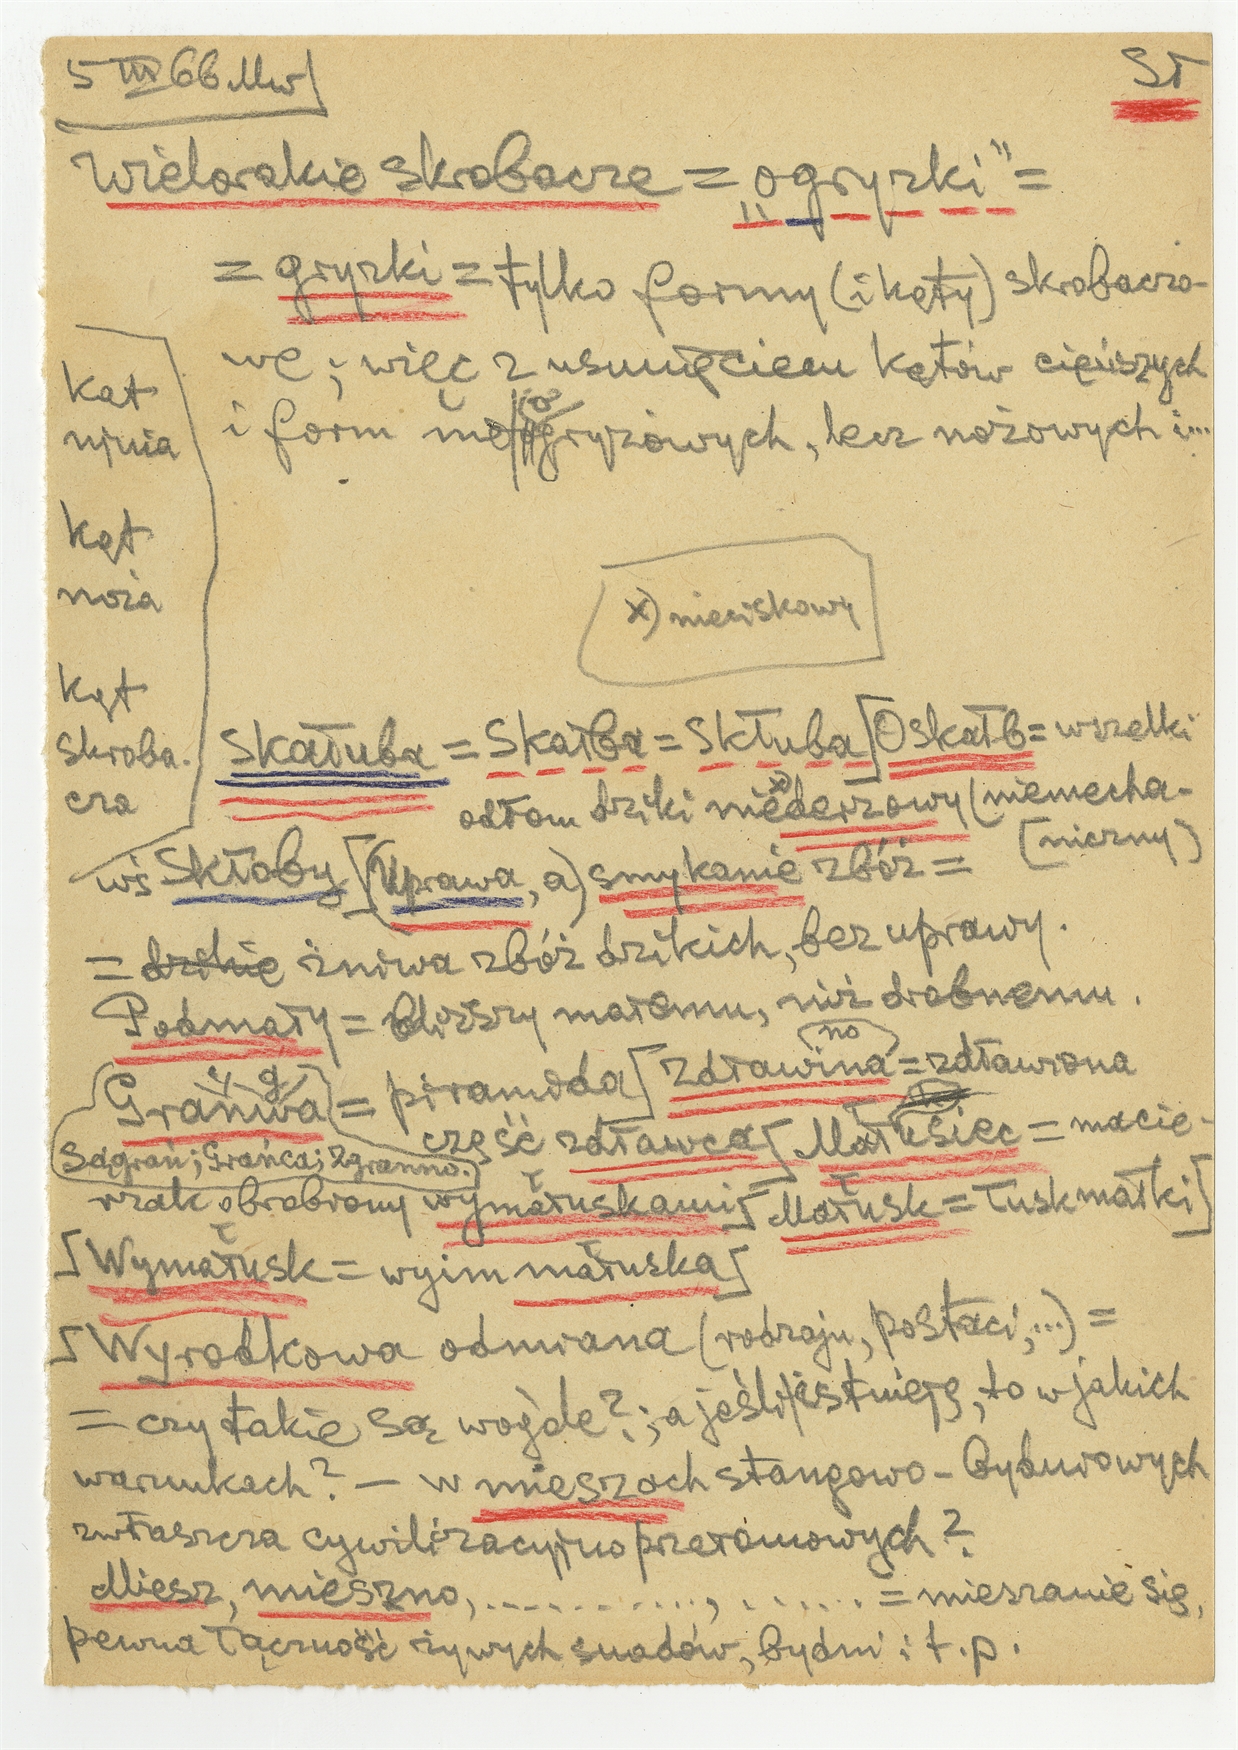 5 III 66 Mw
ST
Wielorakie skrobacze = „ogryzki” =
= gryzki = tylko formy (i kąty) skrobaczo-
we; więc z usunięciem kątów cięższych
i form nie gryzowych, lecz nożowych i...
kąt
kąt
noża
kąt
skroba-
cza
x) nieciskowy
Skałuba = Skałba = Skłuba] Oskałb = wszelki
odłom dziki niederzowy x) (niemecha-
(niczny)
wś Skłoby [(Uprawa, a) smykanie zbóż =
= dzikie żniwa zbóż dzikich, bez uprawy.
Podmały = bliższy małemu, niż drobnemu.
no
Graniwa = piramida] Zdławina = zdławiona
część zdławca] Małusiec = macie-
Sągrań; Grańca; Zgranno.
rzak obrobiony wymałuskami] [Małusk = łusk małki]
[Wymałusk = wyim małuska]
[Wyrodkowa odmiana (rodzaju, postaci,...) =
= czy takie są wogóle?; a jeśli istnieją, to w jakich
warunkach? — w mieszach stangowo-bydurowych
zwłaszcza cywilizacyjno przełomowych?
Miesz, mieszno, ..........., ...... = mieszanie się,
pewna łączność żywych suadów, bydni i t.p.